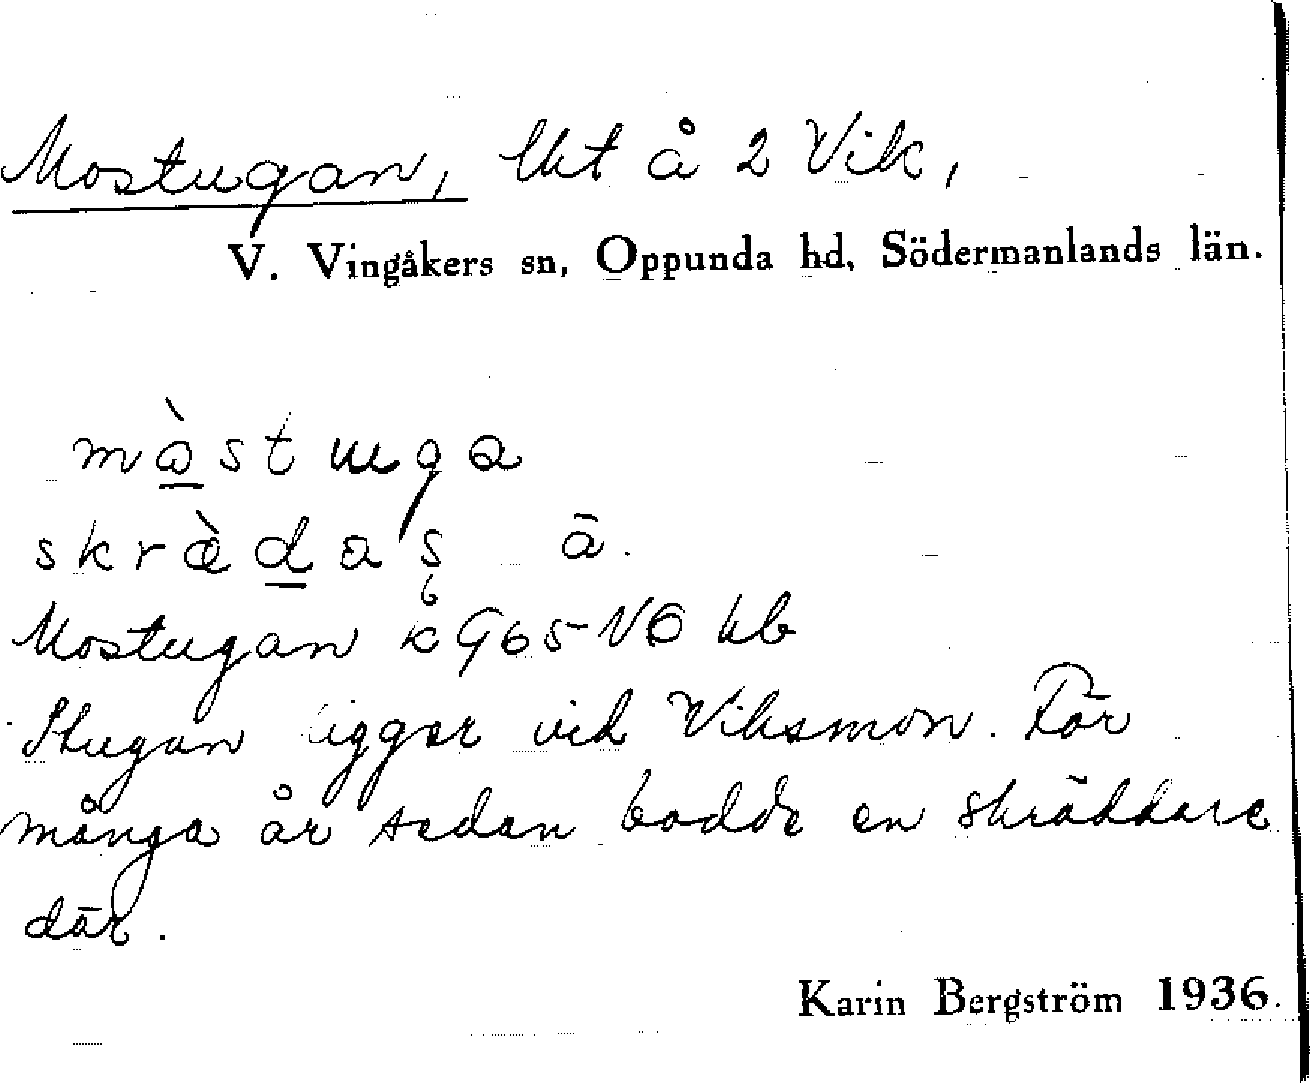 Mostugan, lht å 2 Vik,
V. Vingåkers sn, Oppunda hd, Södermanlands län.
màstuga
skrædas
Mostugan k G65 VÖ hb
Stugan ligger vid Viksmon. För
många år sedan bodde en skräddare
där.
Karin Bergström 1936.